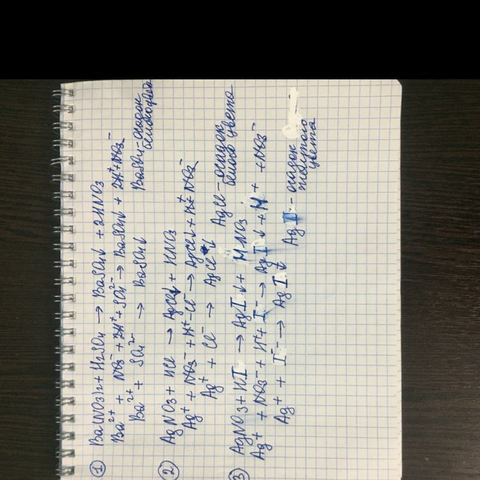 ① Ba(NO3)2 + H2SO4 → BaSO4↓ + 2HNO3
Ba²⁺ + NO3⁻ + 2H⁺ + SO4²⁻ → BaSO4↓ + 2H⁺ + NO3⁻
Ba²⁺ + SO4²⁻ → BaSO4↓ BaSO4 - осадок
белого цвета
② AgNO3 + HCl → AgCl↓ + HNO3
Ag⁺ + NO3⁻ + H⁺ + Cl⁻ → AgCl↓ + H⁺ + NO3⁻
Ag⁺ + Cl⁻ → AgCl↓ AgCl - осадок
белого цвета
③ AgNO3 + HI → AgI↓ + HNO3
Ag⁺ + NO3⁻ + H⁺ + I⁻ → AgI↓ + H⁺ + NO3⁻
Ag⁺ + I⁻ → AgI↓ AgI - осадок
желтого
цвета